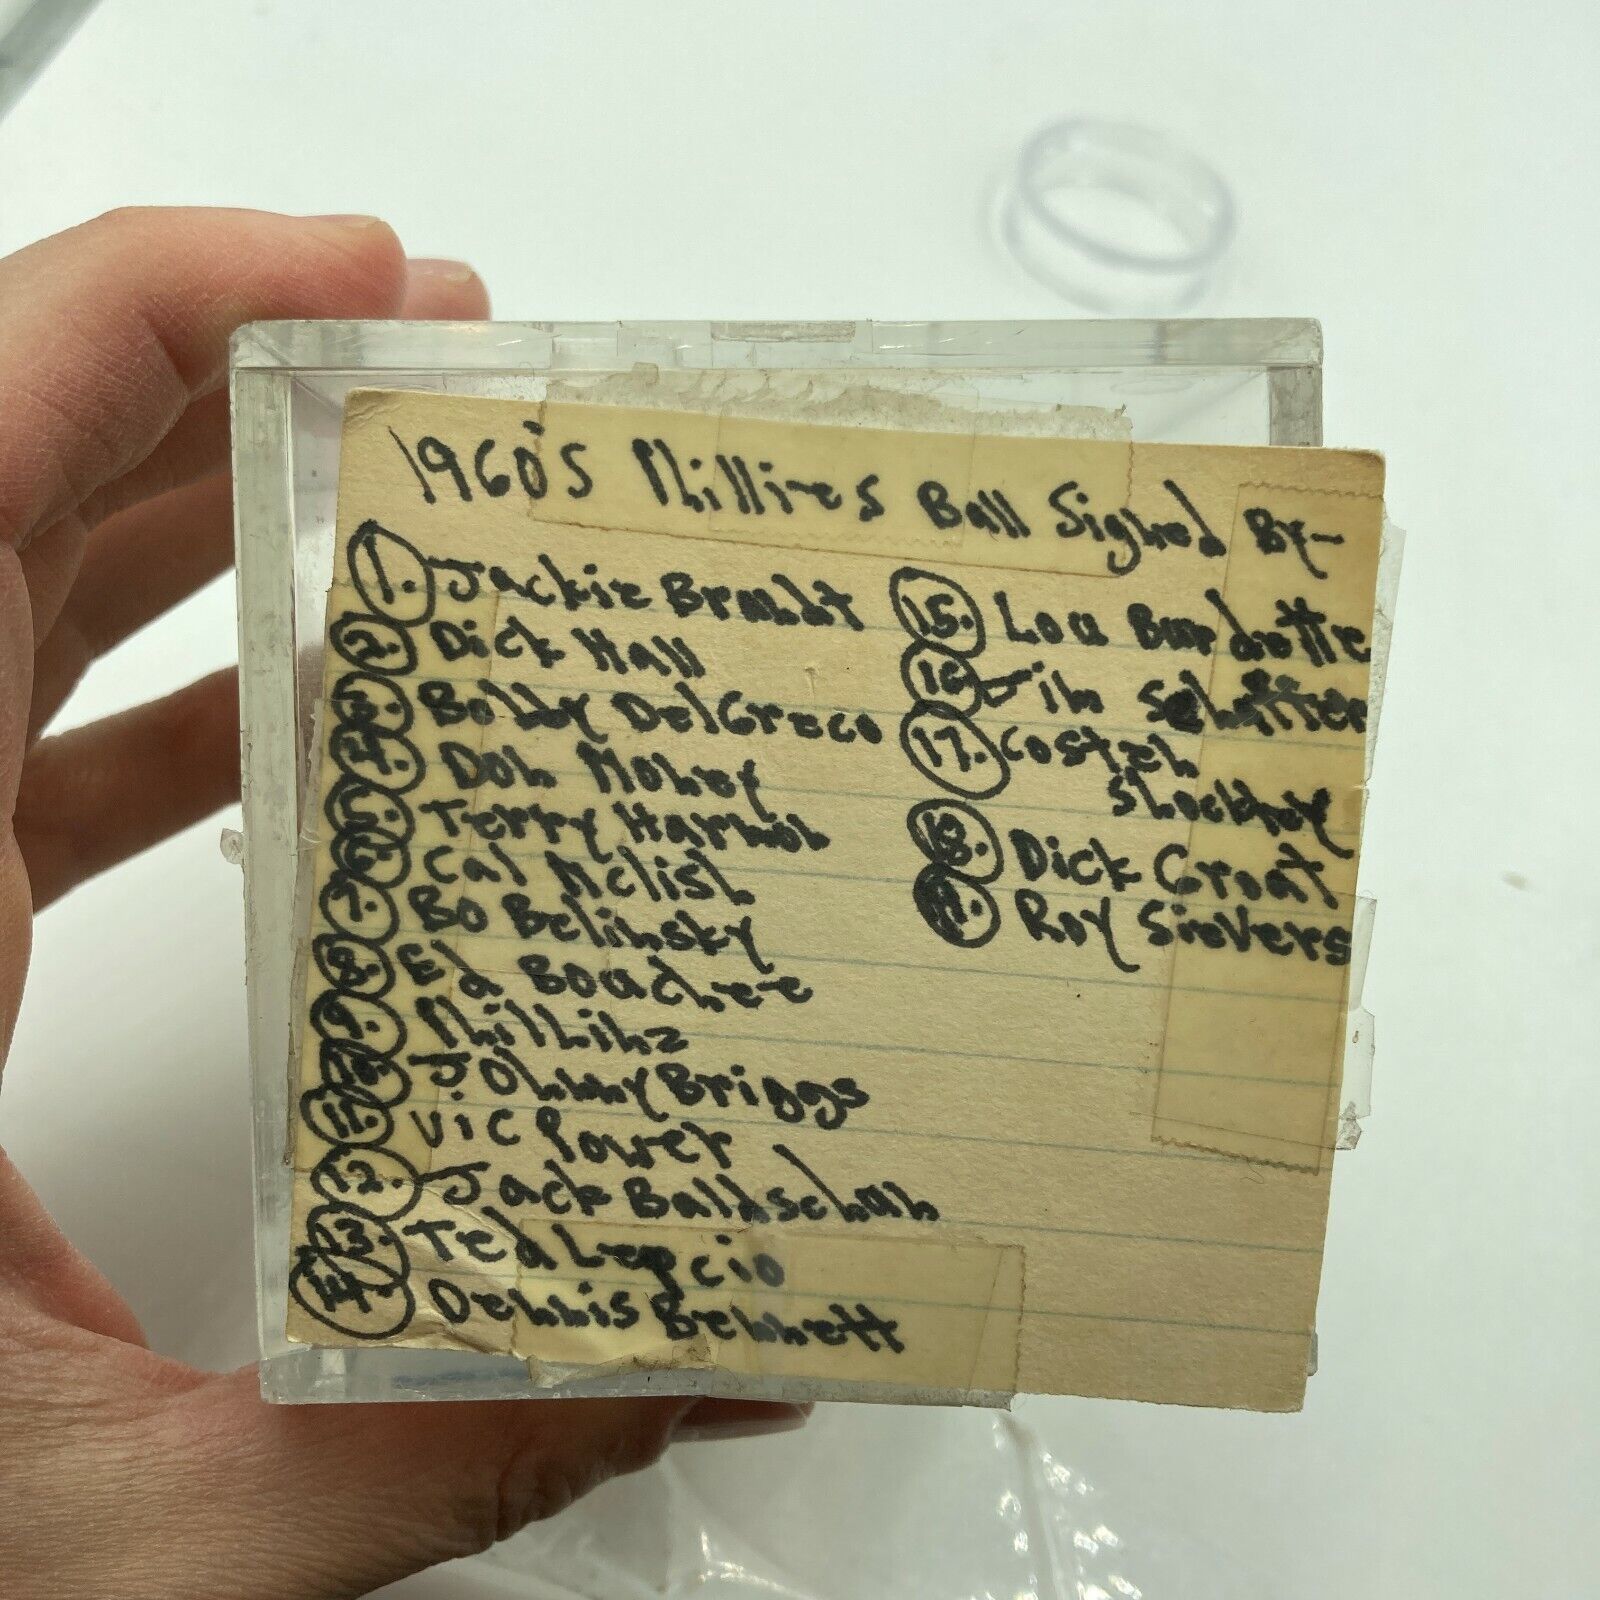 1960's Phillies Ball Signed By-
1. Jackie Brandt
2. Dick Hall
3. Bobby DelGreco
4. Don Money
5. Terry Harmon
6. Cal Mclish
7. Bo Belinsky
8. Ed Bouchee
9. Phil Linz
10. Johnny Briggs
11. Vic Power
12. Jack Baldschun
13. Ted Lepcio
14. Dennis Bennett
15. Lou Burdette
16. Jim Schaffer
17. Costen
Shockley
18. Dick Groat
19. Roy Sievers